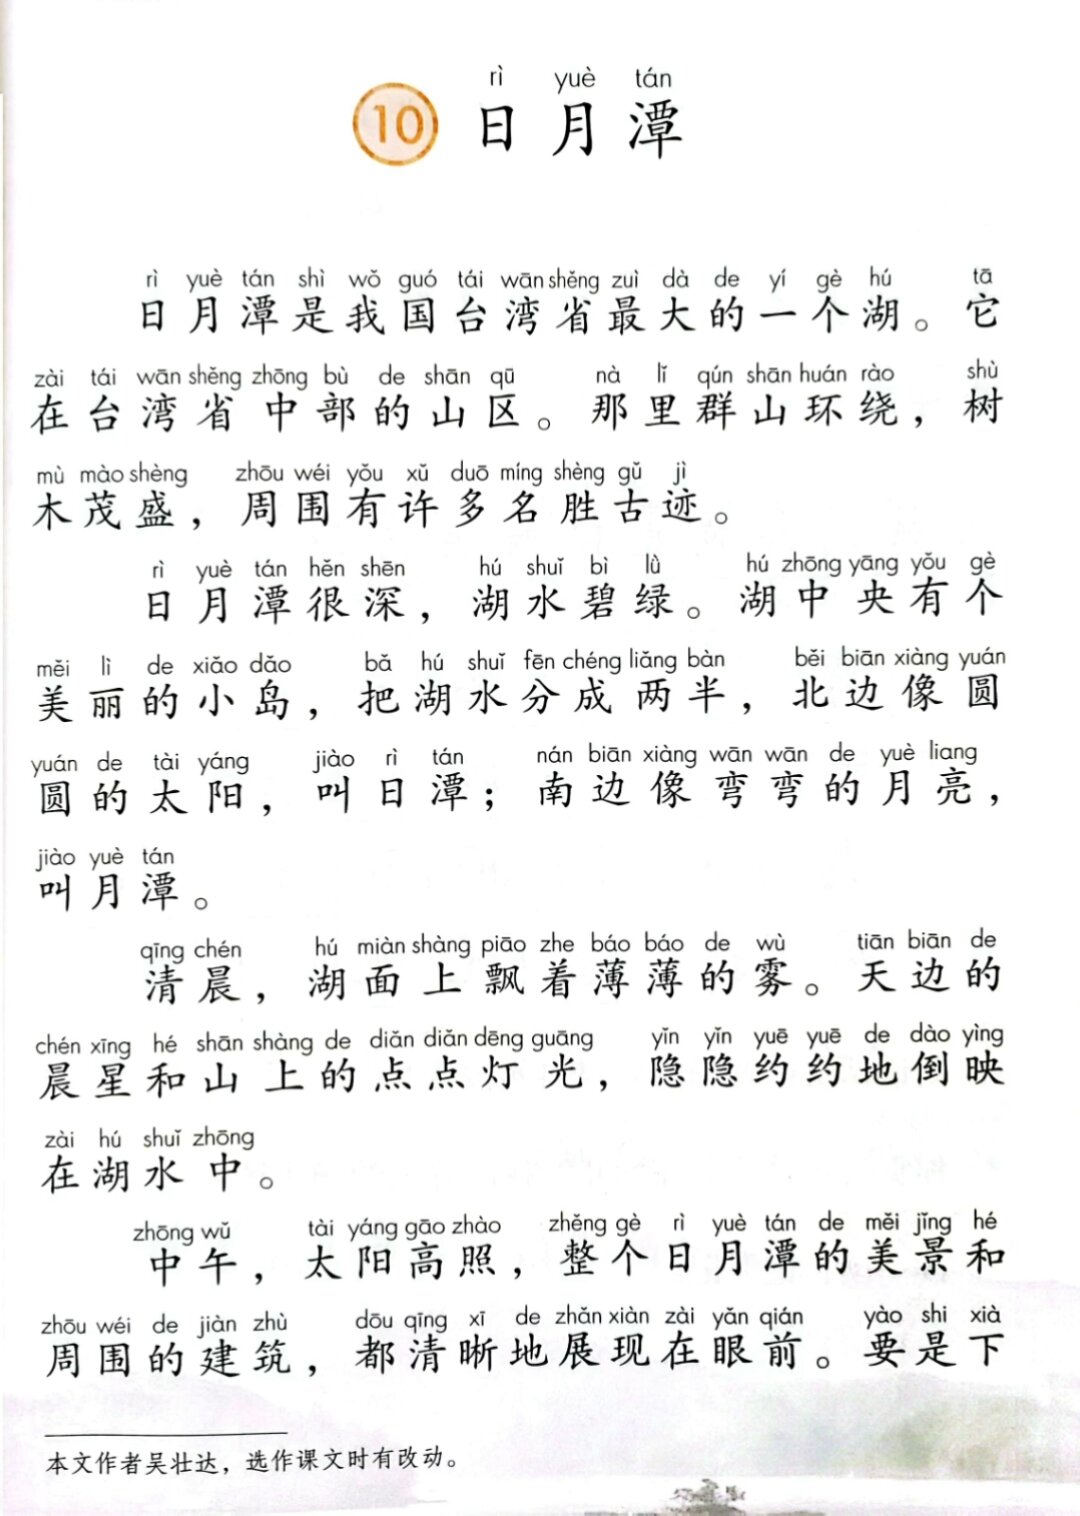 rì yuè tán
10 日月潭
rì yuè tán shì wǒ guó tái wān shěng zuì dà de yí gè hú tā
日月潭是我国台湾省最大的一个湖。它
zài tái wān shěng zhōng bù de shān qū nà lǐ qún shān huán rào shù
在台湾省中部的山区。那里群山环绕，树
mù mào shèng zhōu wéi yǒu xǔ duō míng shèng gǔ jì
木茂盛，周围有许多名胜古迹。
rì yuè tán hěn shēn hú shuǐ bì lǜ hú zhōng yāng yǒu gè
日月潭很深，湖水碧绿。湖中央有个
měi lì de xiǎo dǎo bǎ hú shuǐ fēn chéng liǎng bàn běi biān xiàng yuán
美丽的小岛，把湖水分成两半，北边像圆
yuán de tài yáng jiào rì tán nán biān xiàng wān wān de yuè liang
圆的太阳，叫日潭；南边像弯弯的月亮，
jiào yuè tán
叫月潭。
qīng chén hú miàn shàng piāo zhe báo báo de wù tiān biān de
清晨，湖面上飘着薄薄的雾。天边的
chén xīng hé shān shàng de diǎn diǎn dēng guāng yǐn yǐn yuē yuē de dào yìng
晨星和山上的点点灯光，隐隐约约地倒映
zài hú shuǐ zhōng
在湖水中。
zhōng wǔ tài yáng gāo zhào zhěng gè rì yuè tán de měi jǐng hé
中午，太阳高照，整个日月潭的美景和
zhōu wéi de jiàn zhù dōu qīng xī de zhǎn xiàn zài yǎn qián yào shi xià
周围的建筑，都清晰地展现在眼前。要是下
本文作者吴壮达，选作课文时有改动。